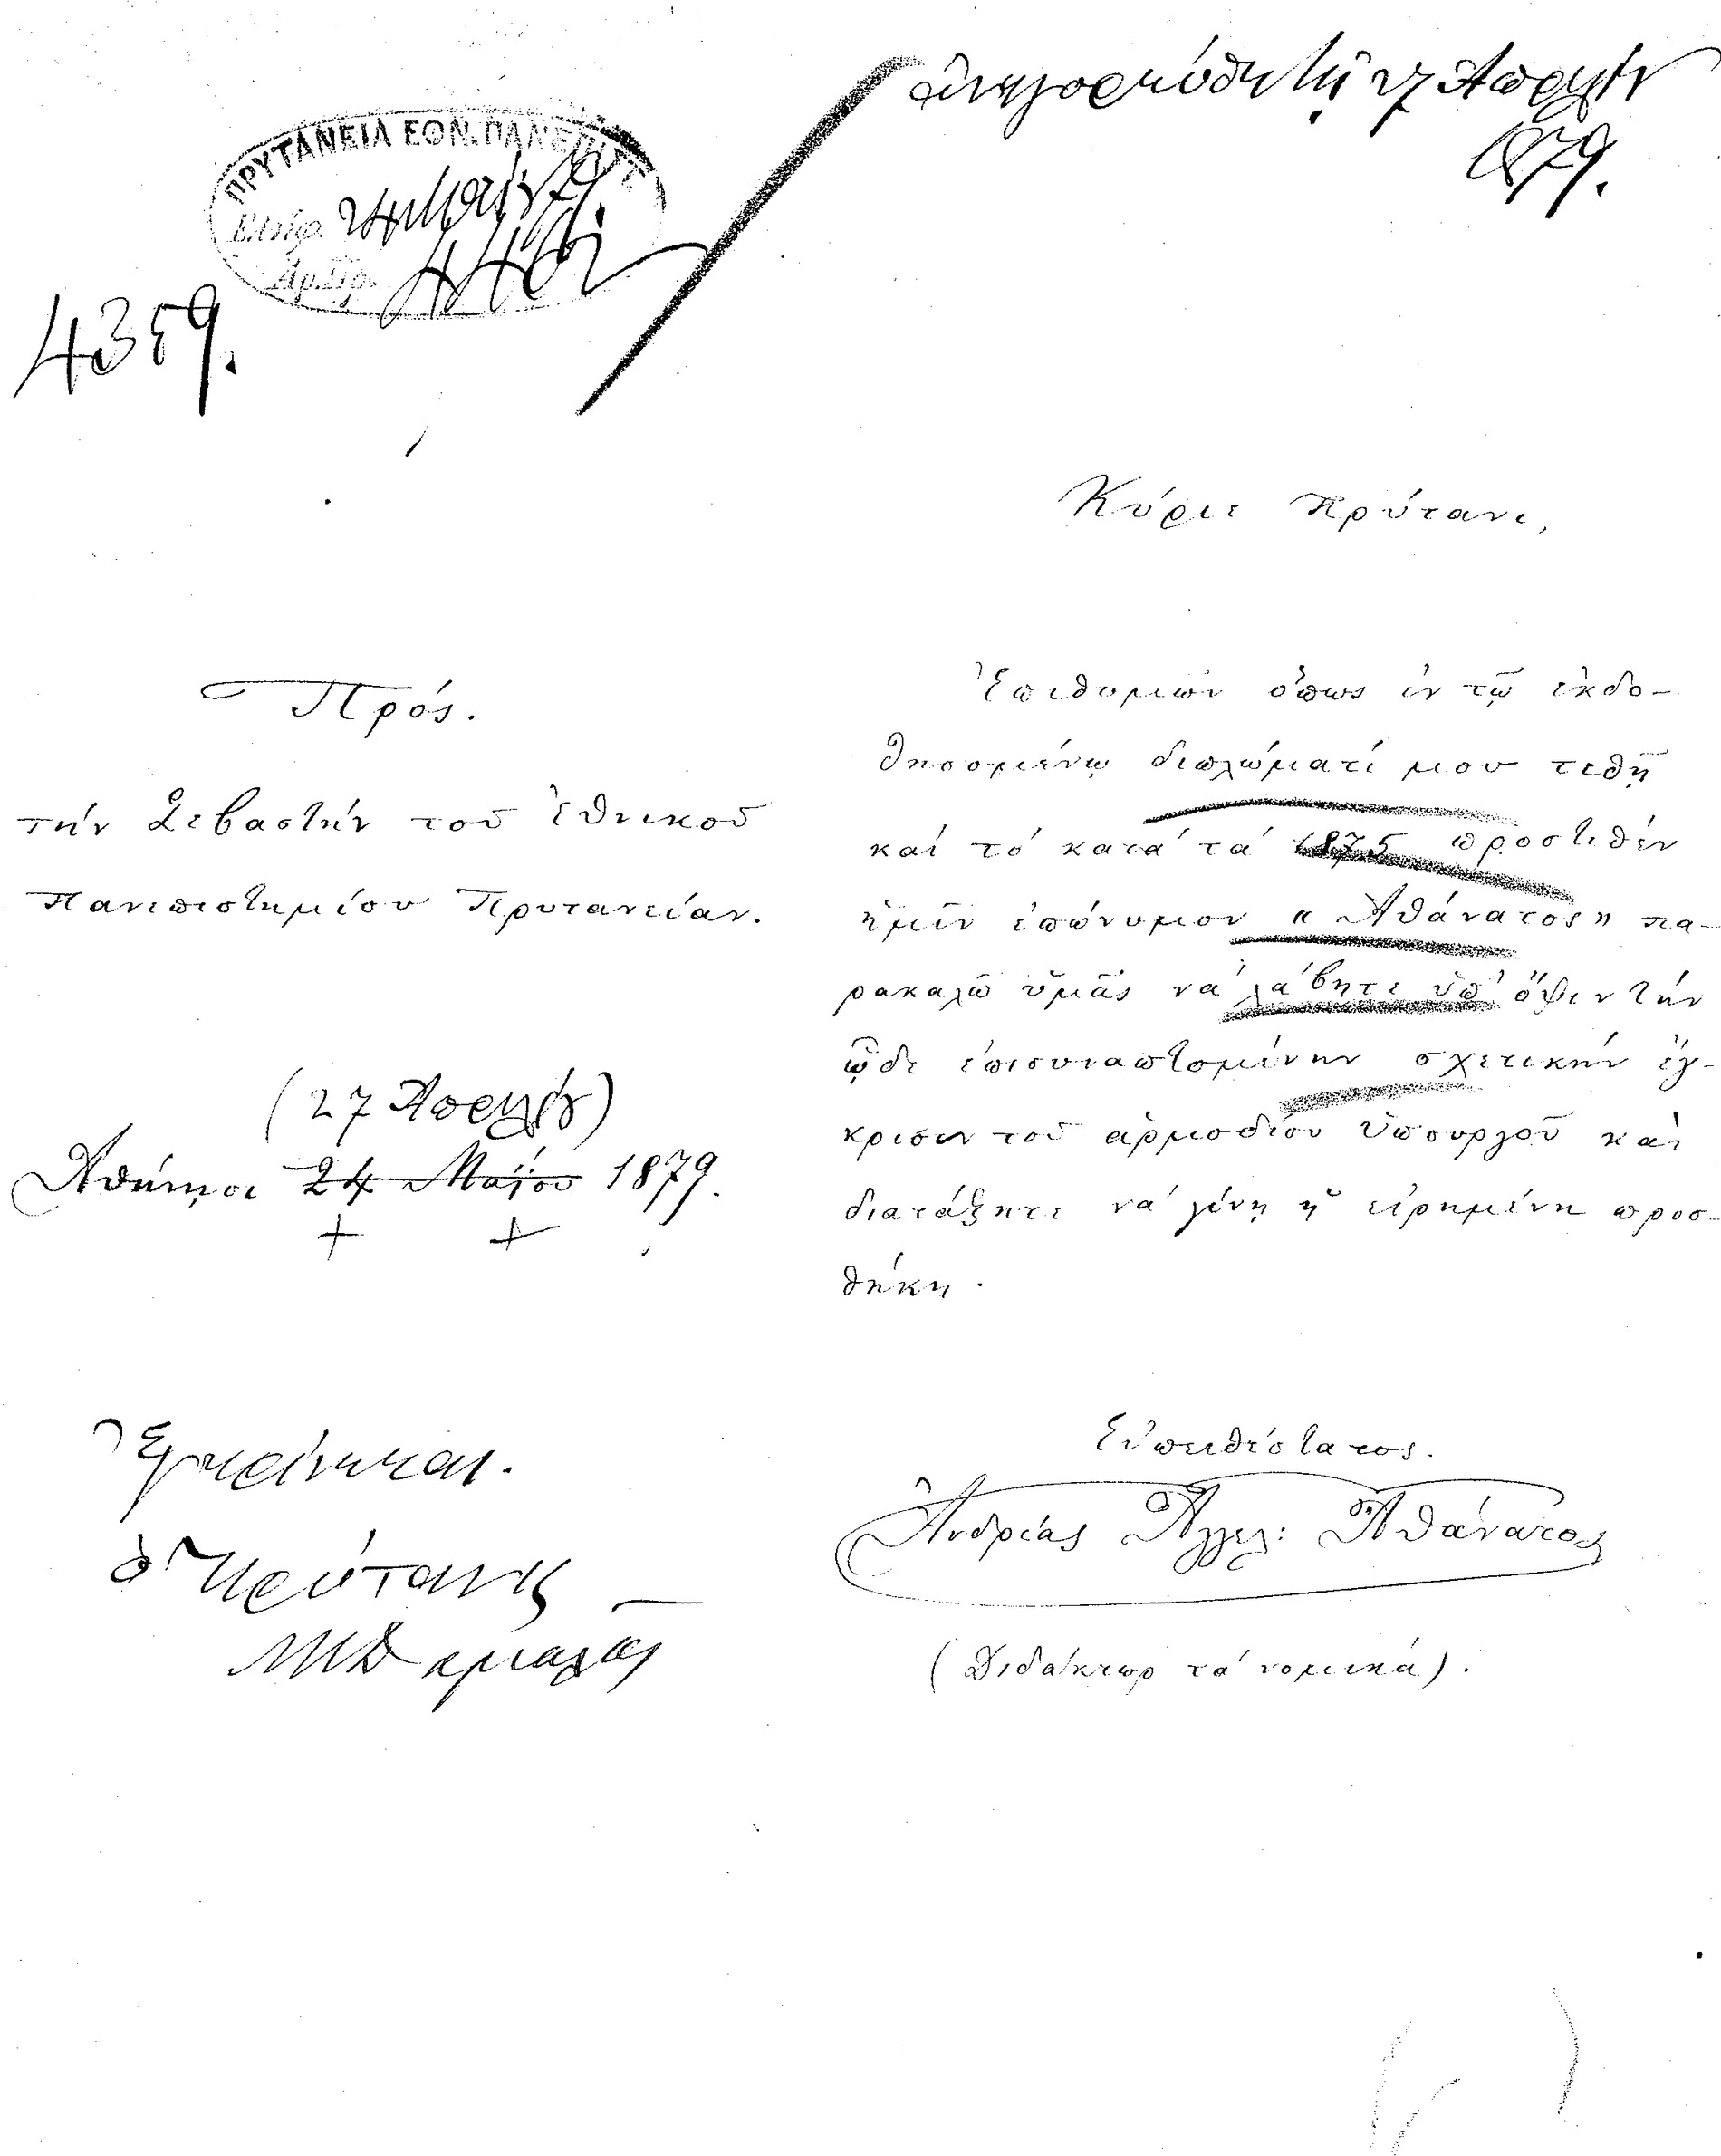 ἀνηγορεύθη τῇ 27 Ἀπριλίου
1879.
ΠΡΥΤΑΝΕΙΑ ΕΘΝ. ΠΑΝΕΠΙΣΤ.
Ἐλήφ. 24 Μαΐου 79
Ἀρ. Πρ.
4359.
Κύριε Πρύτανι,
Πρός.
τήν Σεβαστήν τοῦ Ἐθνικοῦ
Πανεπιστημίου Πρυτανείαν.
(27 Ἀπριλίου)
Ἀθήνησι 24 Μαΐου 1879.
Ἐπιθυμῶν ὅπως ἐν τῷ ἐκδο-
θησομένῳ διπλώματί μου τεθῇ
καί τό κατά τά 1875 προστεθέν
ἡμῖν ἐπώνυμον « Ἀθάνατος » πα-
ρακαλῶ ὑμᾶς νά λάβητε ὑπ' ὄψιν τήν
ᾧδε ἐπισυναπτομένην σχετικήν ἔγ-
κρισιν τοῦ ἁρμοδίου ὑπουργοῦ καί
διατάξητε νά γίνῃ ἡ εἰρημένη προσ-
θήκη.
Ἐγκρίνεται.
ὁ Πρύτανις
Ν Μ Δαμαλᾶς
Εὐπειθέστατος.
Ἀνδρέας Ἀγγελ: Ἀθάνατος
(Διδάκτωρ τά νομικά).